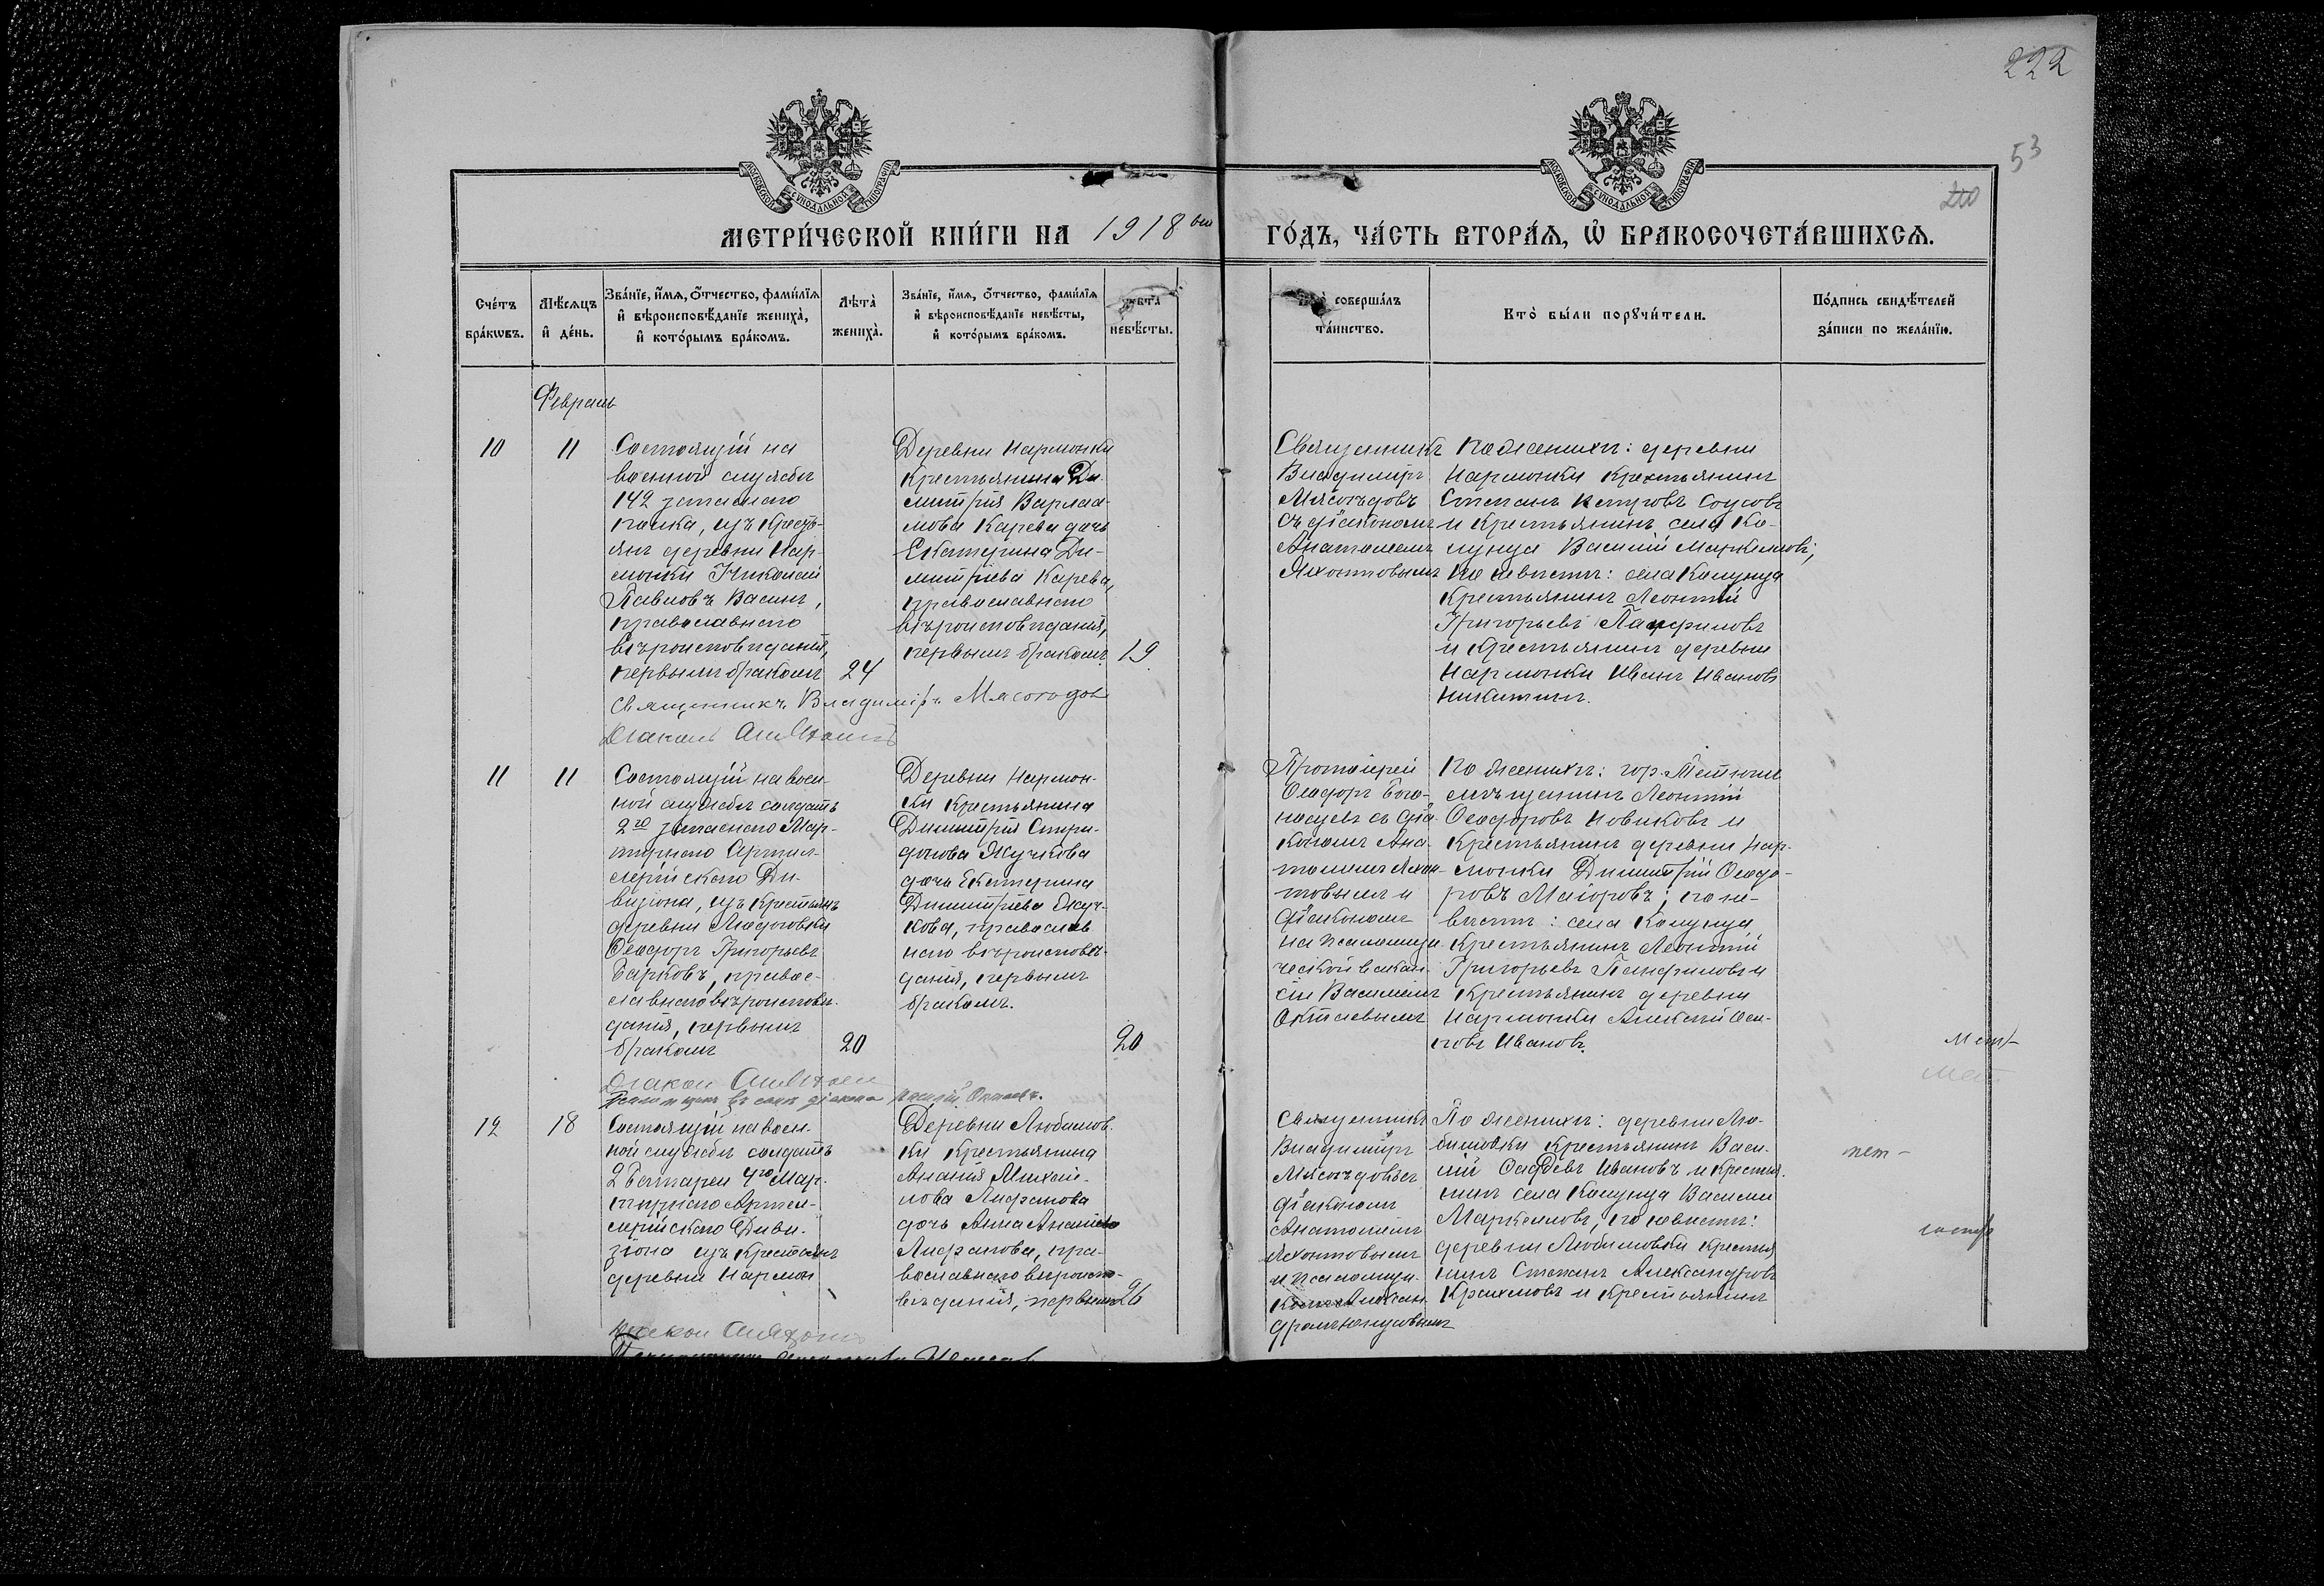 222
53
210
МОСКОВСКОЙ СѴНОДАЛЬНОЙ ТИПОГРАФІИ
МОСКОВСКОЙ СѴНОДАЛЬНОЙ ТИПОГРАФІИ
МЕТРИ́ЧЕСКОЙ КНИ́ГИ НА 1918 ый ГО́ДЪ, ЧА́СТЬ ВТОРА́Ѧ, Ѽ БРАКОСОЧЕТА́ВШИХСѦ.
Сче́тъ бра́кѡвъ.
Мѣ́сяцъ и҆ де́нь.
Зва́нїе, и҆́мя, ѻ҆́тчество, фами́лїя
и҆ вѣроисповѣ́данїе жениха̀,
и҆ кото́рымъ бра́комъ.
Лѣта̀ жениха̀.
Зва́нїе, и҆́мя, ѻ҆́тчество, фами́лїя
и҆ вѣроисповѣ́данїе невѣ́сты,
и҆ кото́рымъ бра́комъ.
Лѣта̀ невѣ́сты.
Кто̀ соверша́лъ
та́инство.
Кто̀ бы́ли порꙋчи́тели.
По́дпись свидѣ́телей
за́писи по жела́нїю.
Февраль
10
11
Состоящій на
военной службѣ
142 запаснаго
полка, изъ кресть-
янъ деревни Нар-
монки Николай
Павловъ Васинъ,
православнаго
вѣроисповѣданія,
первымъ бракомъ
24
Деревни Нармонки
крестьянина Ди-
митрія Варлаа-
мова Карева дочь
Екатерина Ди-
митріева Карева,
православнаго
вѣроисповѣданія,
первымъ бракомъ.
19
Священникъ
Владиміръ
Мясоѣдовъ
съ діакономъ
Анатоліемъ
Яхонтовымъ
По женихѣ: деревни
Нармонки крестьянинъ
Степанъ Петровъ Соусовъ
и крестьянинъ села Ко-
лунца Василій Маркеловъ;
по невѣстѣ: села Колунца
крестьянинъ Леонтій
Григорьевъ Панфиловъ
и крестьянинъ деревни
Нармонки Иванъ Ивановъ
Никитинъ.
Священникъ Владиміръ Мясоѣдовъ
Діаконъ
11
11
Состоящій на воен-
ной службѣ солдатъ
2го запаснаго Мар-
тирнаго Артил-
лерійскаго Ди-
визіона, изъ крестьянъ
деревни Людоговки
Ѳеодоръ Григорьевъ
Барковъ, правос-
лавнаго вѣроисповѣ-
данія, первымъ
бракомъ
20
Деревни Нармон-
ки крестьянина
Димитрія Спири-
донова Жучкова
дочь Екатерина
Димитріева Жуч-
кова, православ-
наго вѣроисповѣ-
данія, первымъ
бракомъ.
20
Протоіерей
Ѳеодоръ Бого-
носцевъ съ діа-
кономъ Ана-
толіемъ Яхон-
товымъ и
діакономъ
на псаломщи-
ческой вакан-
сіи Василіемъ
Окталевымъ
По женихѣ: гор. Тетюшъ
мѣщанинъ Леонтій
Ѳеодоровъ Новиковъ и
крестьянинъ деревни Нар-
монки Димитрій Ѳеодо-
ровъ Маіоровъ; по не-
вѣстѣ: села Колунца
крестьянинъ Леонтій
Григорьевъ Панфиловъ и
крестьянинъ деревни
Нармонки Алексѣй Оси-
повъ Ивановъ.
Діаконъ
Псаломщикъ въ санѣ діакона
12
18
Состоящій на воен-
ной службѣ солдатъ
2 батареи 4го Мар-
тирнаго Артил-
лерійскаго Диви-
зіона изъ крестьянъ
деревни Нармон
Деревни Любимов-
ки крестьянина
Ананія Михай-
лова Анфанова
дочь Анна Ананіева
Анфанова, пра-
вославнаго вѣроиспо-
вѣданія, первымъ
26
Священникъ
Владиміръ
Мясоѣдовъ съ
діакономъ
Анатоліемъ
Яхонтовымъ
и псаломщи-
комъ Алексан-
дромъ
По женихѣ: деревни Лю-
бимовки крестьянинъ Васи-
лій Ѳаддеевъ Ивановъ и крестья-
нинъ села Колунца Василій
Маркеловъ; по невѣстѣ:
деревни Любимовки крестья-
нинъ Степанъ Александровъ
и крестьянинъ
Діаконъ